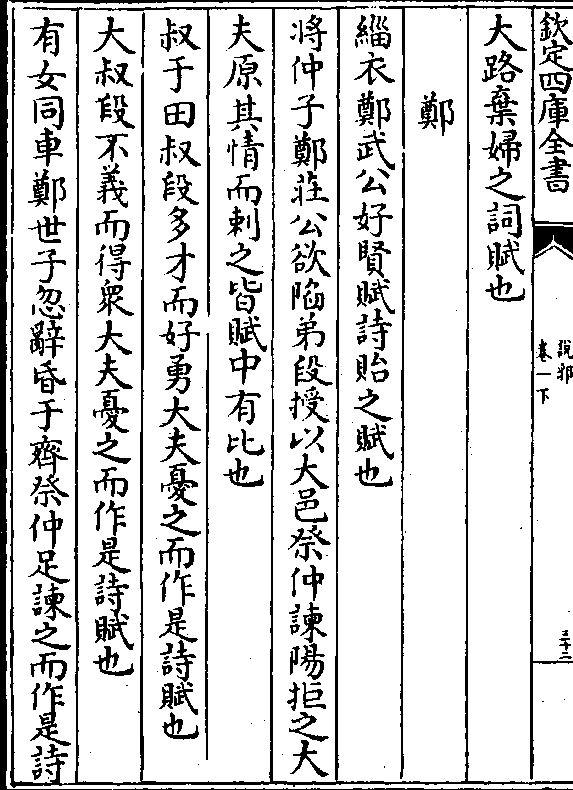 欽定四庫全書
說郛
卷一下
三十二
大路棄婦之詞賦也
鄭
緇衣鄭武公好賢賦詩貽之賦也
將仲子鄭莊公欲陷弟段授以大邑祭仲諫陽拒之大
夫原其情而刺之皆賦中有比也
叔于田叔段多才而好勇大夫憂之而作是詩賦也
大叔段不義而得衆大夫憂之而作是詩賦也
有女同車鄭世子忽辭昏于齊祭仲足諫之而作是詩